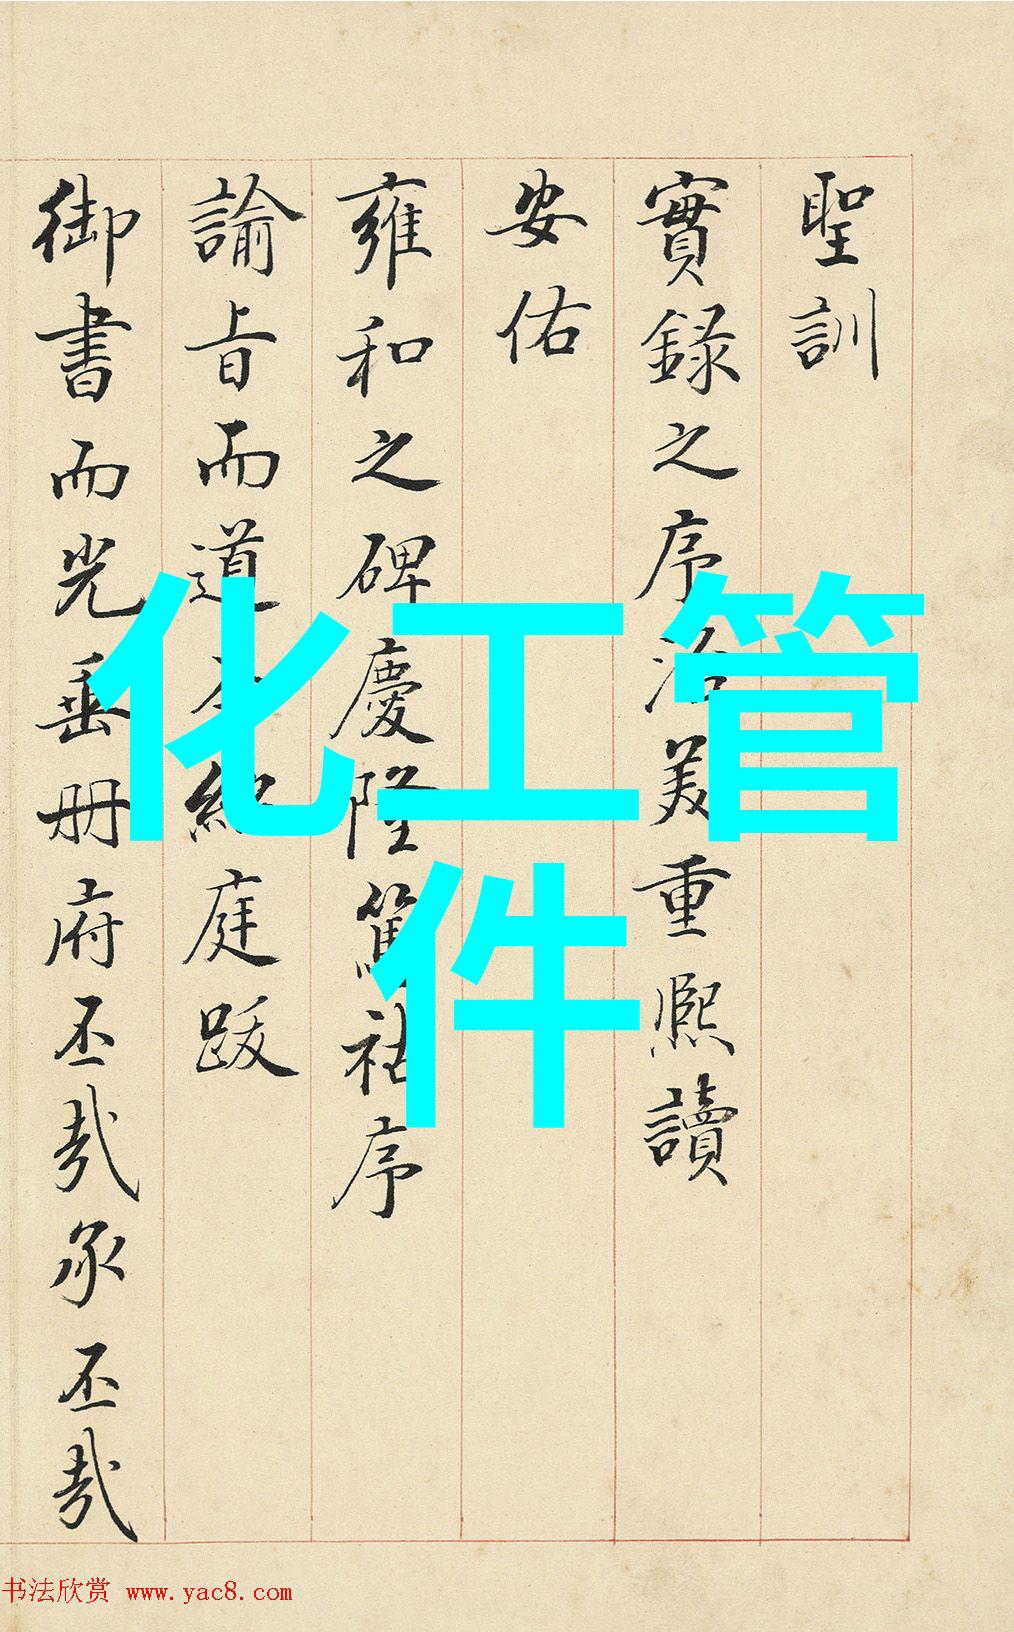 聖訓
實録之序洽美重熈讀
安佑
雍和之碑慶隆篤祜序
諭旨而道
庭跋
御書而光垂册府丕哉承丕哉
化工管
件
书法欣赏 www.yac8.com